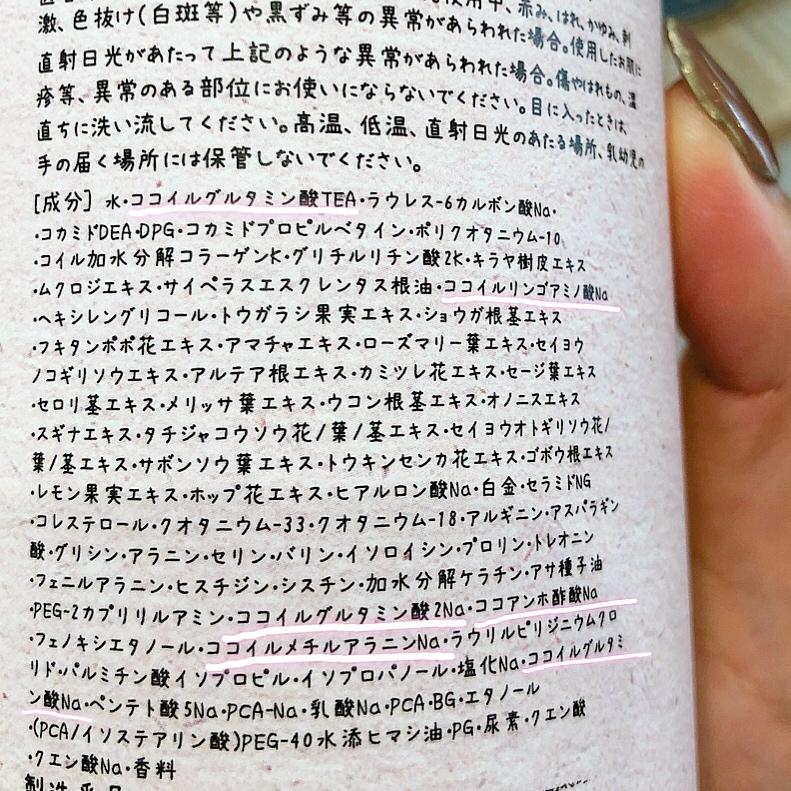 使用中、赤み、はれ、かゆみ、刺
激、色抜け(白斑等)や黒ずみ等の異常があらわれた場合。使用したお肌に
直射日光があたって上記のような異常があらわれた場合。傷やはれもの、湿
疹等、異常のある部位にお使いにならないでください。目に入ったときは、
直ちに洗い流してください。高温、低温、直射日光のあたる場所、乳幼児の
手の届く場所には保管しないでください。
[成分] 水・ココイルグルタミン酸TEA・ラウレス-6カルボン酸Na・
・コカミドDEA・DPG・コカミドプロピルベタイン・ポリクオタニウム-10
・コイル加水分解コラーゲンK・グリチルリチン酸2K・キラヤ樹皮エキス
・ムクロジエキス・サイペラスエスクレンタス根油・ココイルリンゴアミノ酸Na
・ヘキシレングリコール・トウガラシ果実エキス・ショウガ根茎エキス
・フキタンポポ花エキス・アマチャエキス・ローズマリー葉エキス・セイヨウ
ノコギリソウエキス・アルテア根エキス・カミツレ花エキス・セージ葉エキス
・セロリ茎エキス・メリッサ葉エキス・ウコン根茎エキス・オノニスエキス
・スギナエキス・タチジャコウソウ花/葉/茎エキス・セイヨウオトギリソウ花/
葉/茎エキス・サボンソウ葉エキス・トウキンセンカ花エキス・ゴボウ根エキス
・レモン果実エキス・ホップ花エキス・ヒアルロン酸Na・白金・セラミドNG
・コレステロール・クオタニウム-33・クオタニウム-18・アルギニン・アスパラギン
酸・グリシン・アラニン・セリン・バリン・イソロイシン・プロリン・トレオニン
・フェニルアラニン・ヒスチジン・シスチン・加水分解ケラチン・アサ種子油
・PEG-2カプリリルアミン・ココイルグルタミン酸2Na・ココアンホ酢酸Na
・フェノキシエタノール・ココイルメチルアラニンNa・ラウリルピリジニウムクロ
リド・パルミチン酸イソプロピル・イソプロパノール・塩化Na・ココイルグルタミ
ン酸Na・ペンテト酸5Na・PCA-Na・乳酸Na・PCA・BG・エタノール
・(PCA/イソステアリン酸)PEG-40水添ヒマシ油・PG・尿素・クエン酸
・クエン酸Na・香料